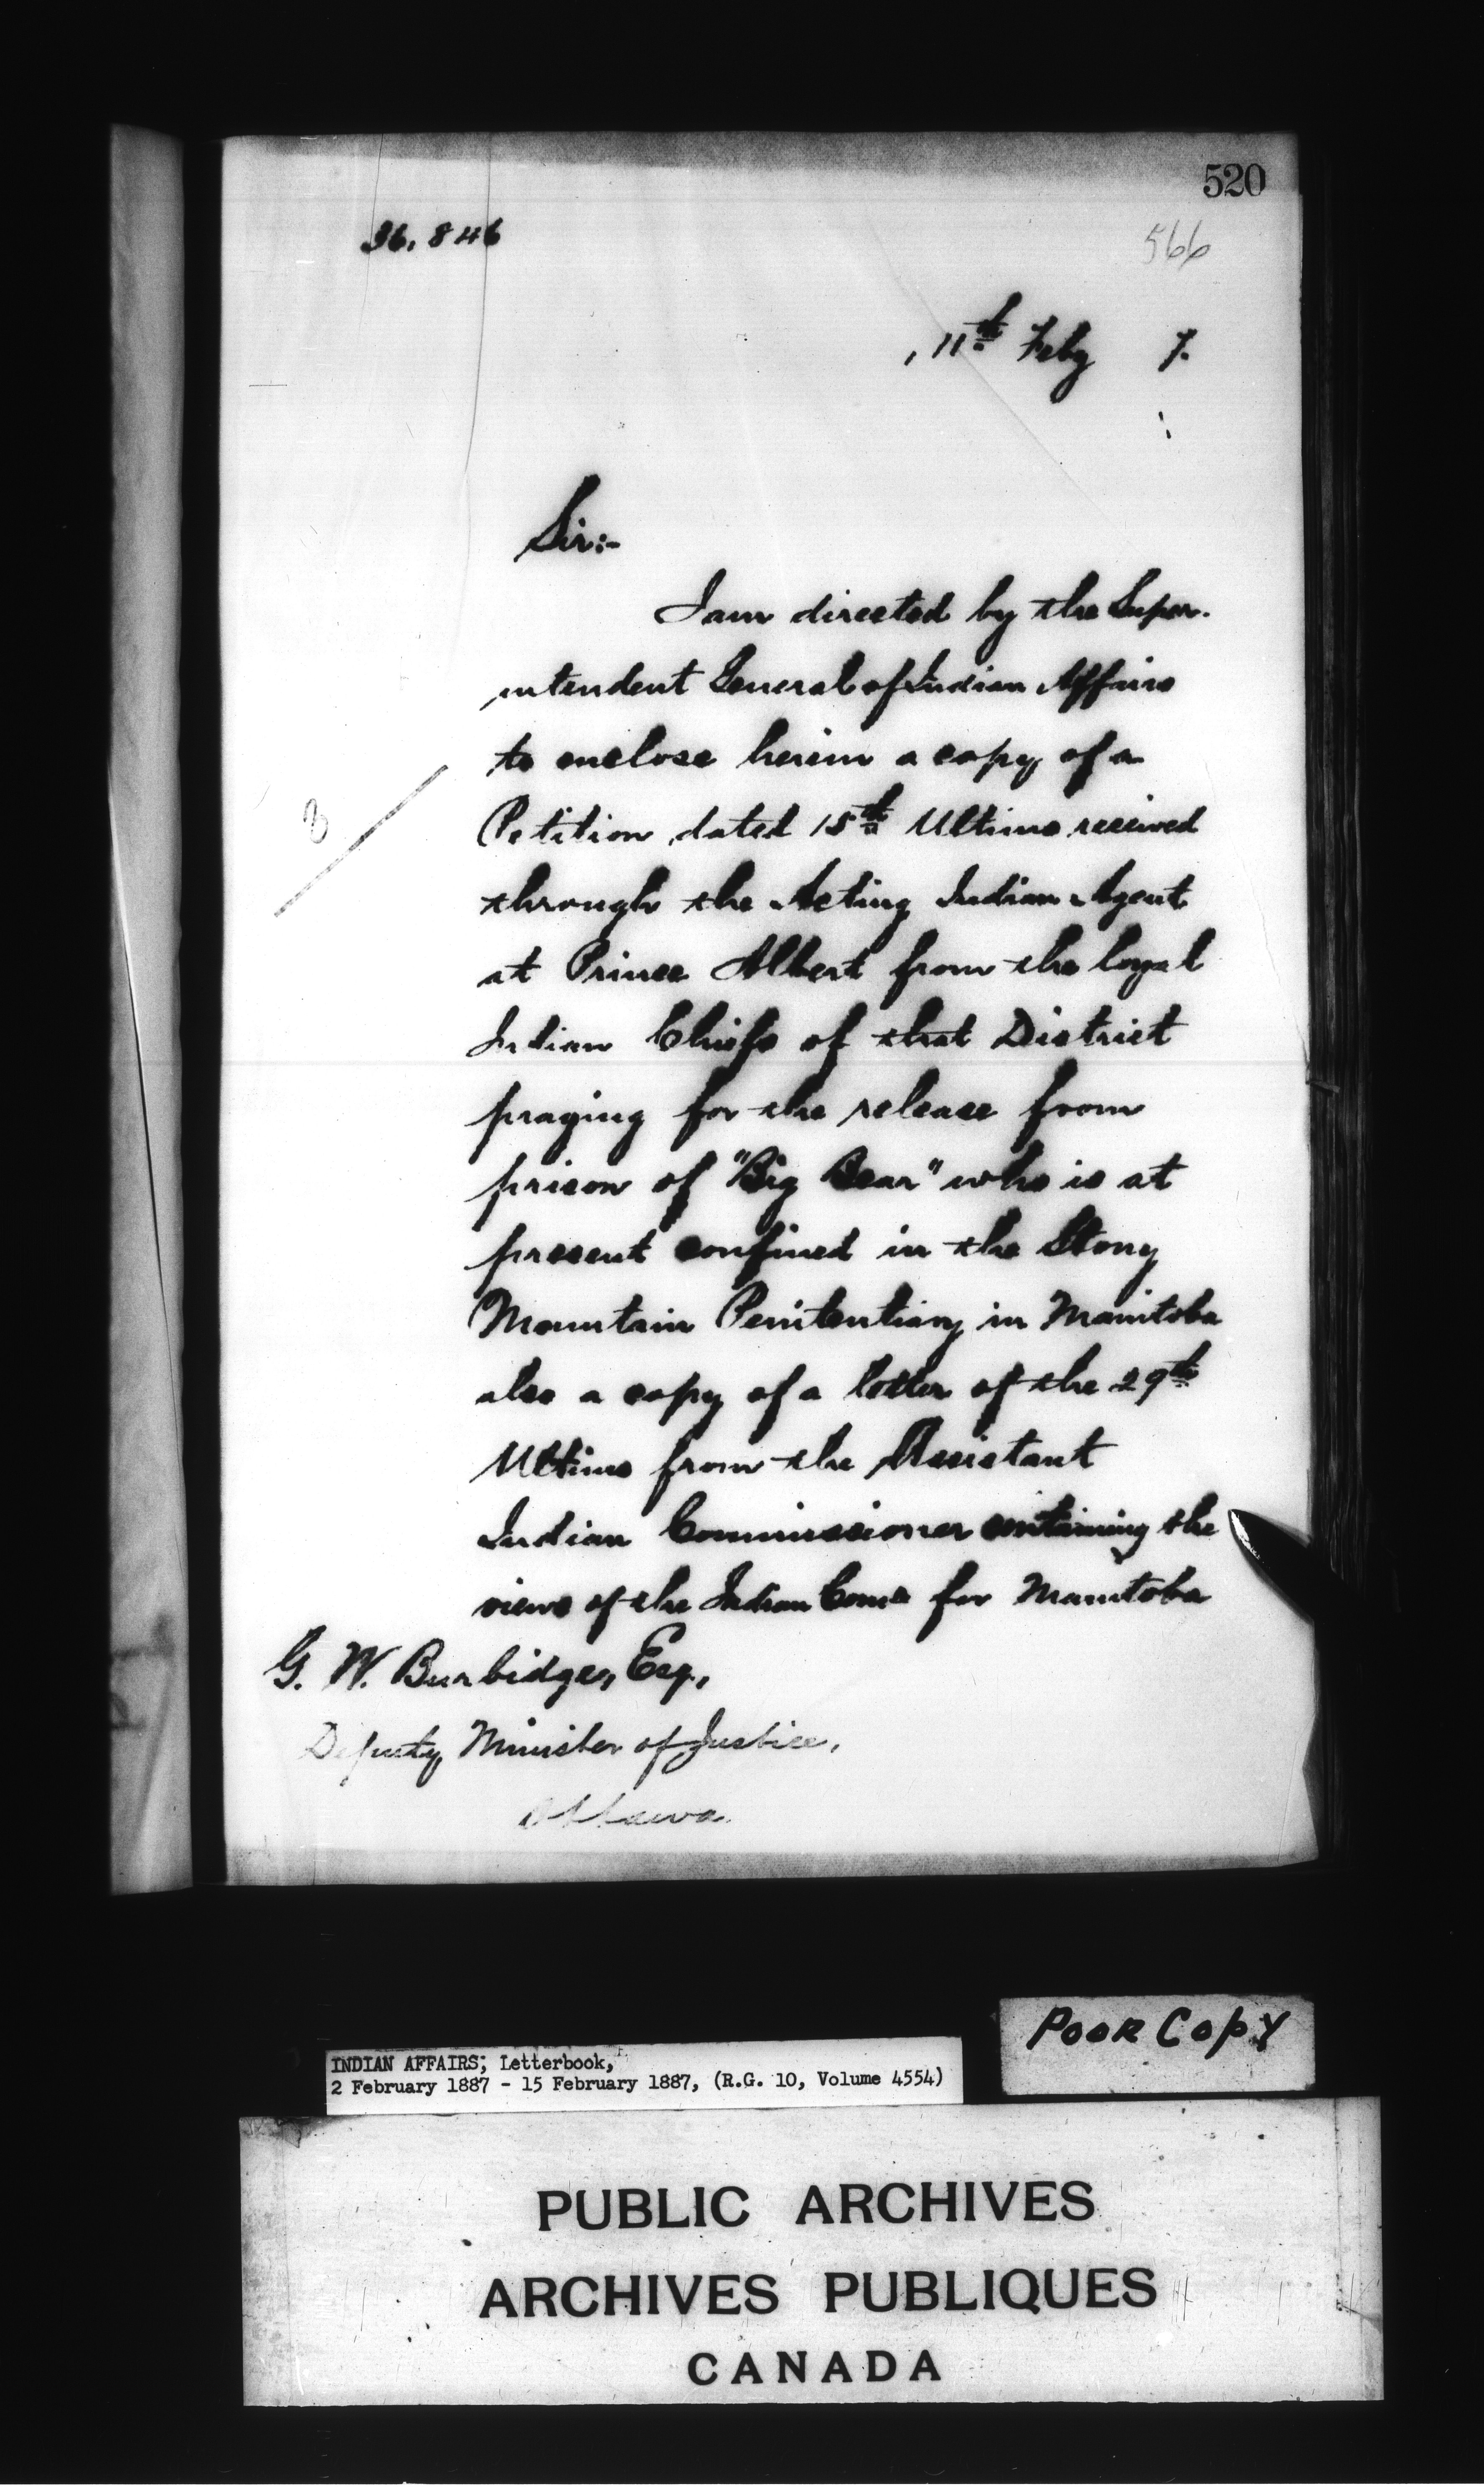 520
36,846
566
, 11th Feby 7.
Sir:-
I am directed by the Super-
intendent General of Indian Affairs
to enclose herein a copy of a
Petition dated 15th Ultimo received
through the Acting Indian Agent
at Prince Albert from the loyal
Indian Chiefs of that District
praying for the release from
prison of "Big Bear" who is at
present confined in the Stony
Mountain Penitentiary in Manitoba
also a copy of a letter of the 29th
Ultimo from the Assistant
Indian Commissioner containing the
views of the Indian Comr for Manitoba
G. W. Burbidge, Esq,
Deputy Minister of Justice,
Ottawa
Poor Copy
INDIAN AFFAIRS; Letterbook,
2 February 1887 - 15 February 1887, (R.G. 10, Volume 4554)
PUBLIC ARCHIVES
ARCHIVES PUBLIQUES
CANADA